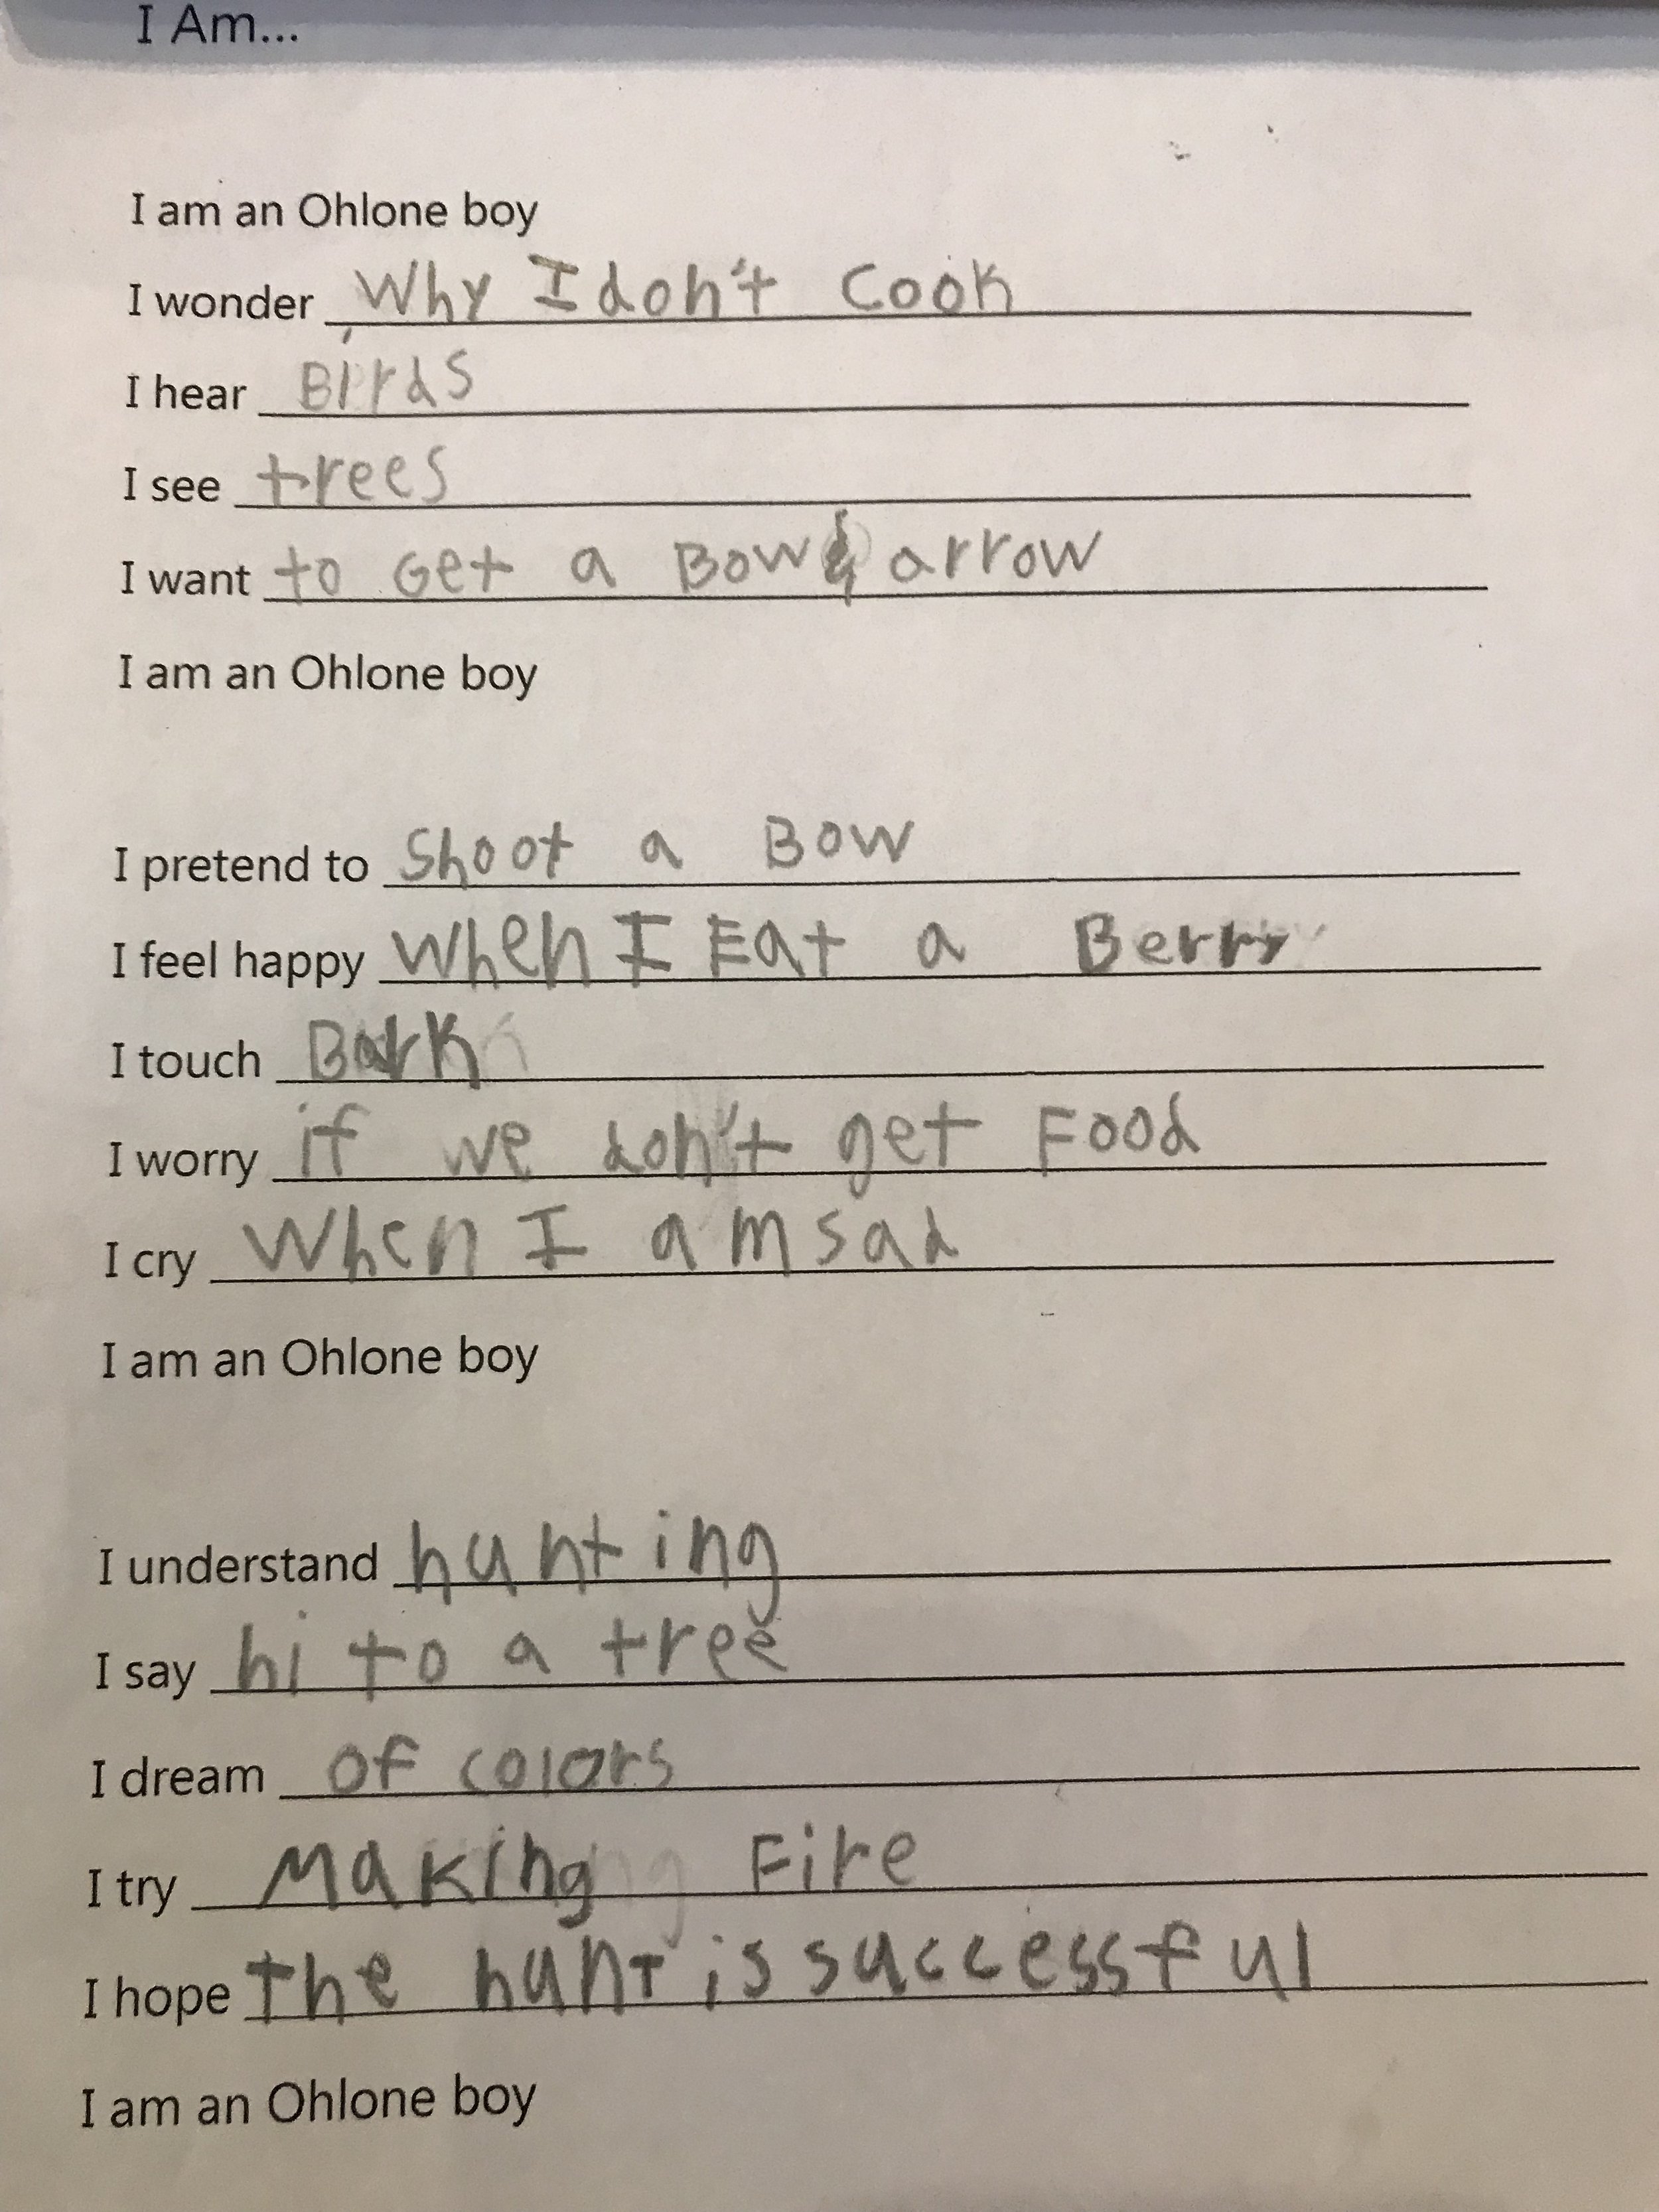 I Am...
I am an Ohlone boy
I wonder Why I don't Cook
I hear Birds
I see trees
I want to Get a Bow & arrow
I am an Ohlone boy
I pretend to Shoot a Bow
I feel happy when I Eat a Berry
I touch Bark
I worry if we don't get Food
I cry When I am sad
I am an Ohlone boy
I understand hunting
I say hi to a tree
I dream of colors
I try Making Fire
I hope the hunt is successful
I am an Ohlone boy